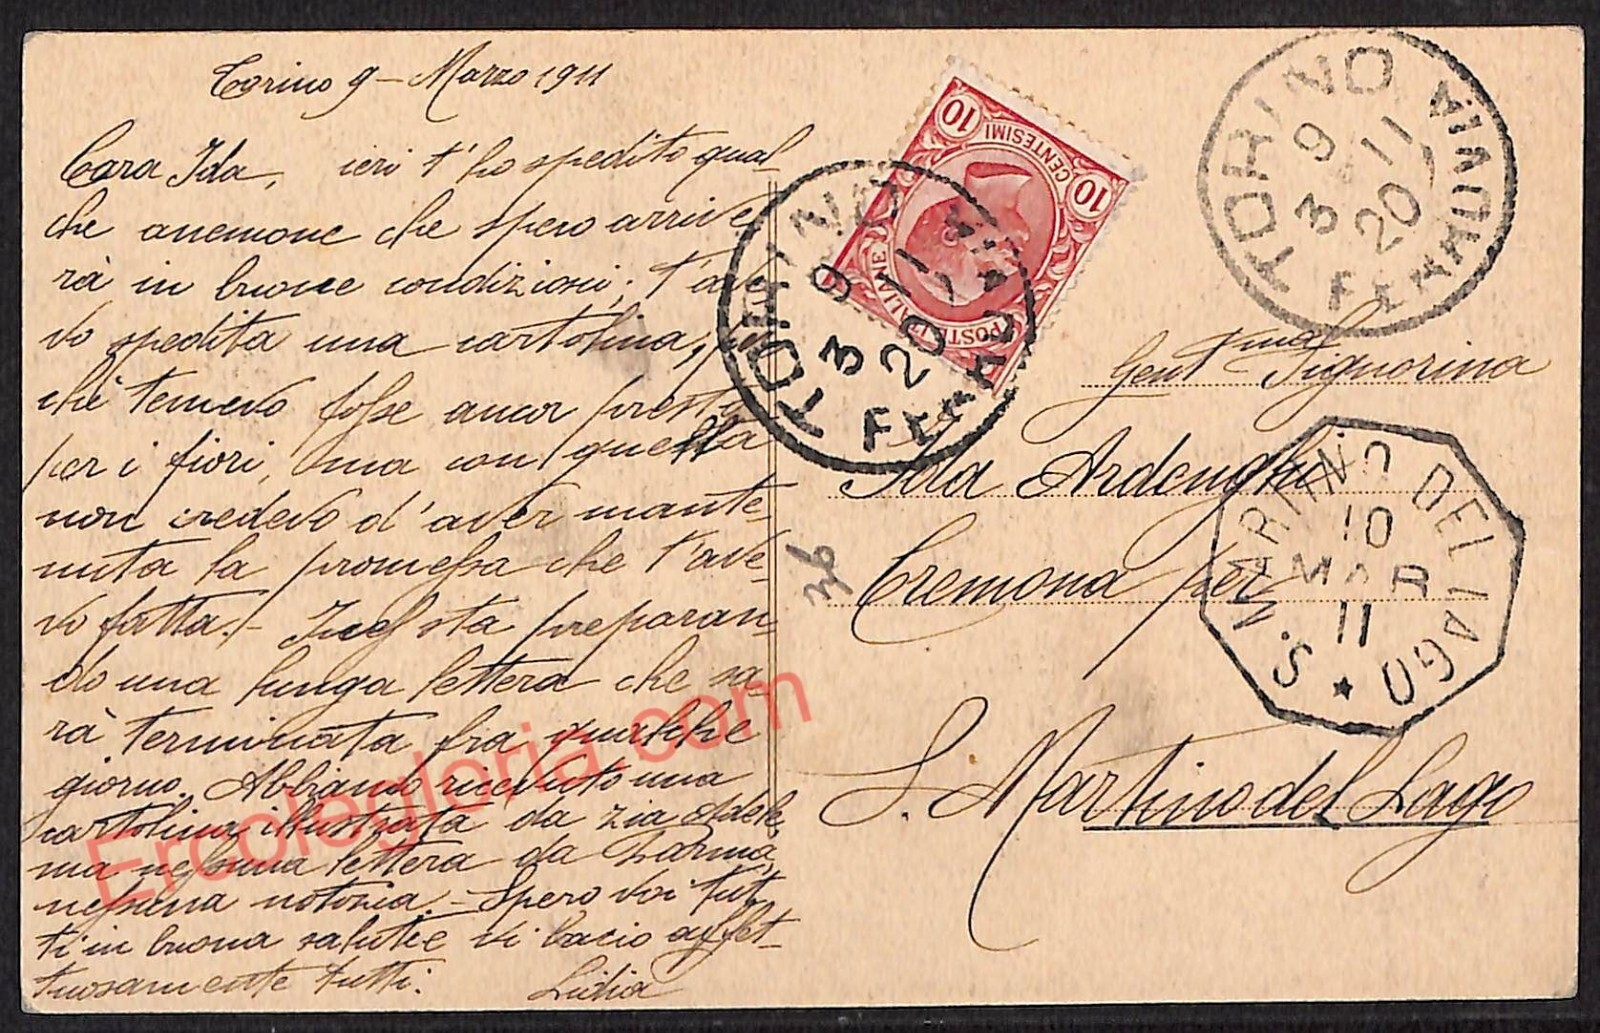 Torino 9 – Marzo 1911
Cara Ida, ieri t'ho spedito qual-
che anemone che spero arrive
rà in buone condizioni; t'ave
vo spedita una cartolina, per
chè temevo fosse ancor presto
per i fiori, ma con questa
non credevo d'aver mante-
nuta la promessa che t'ave-
vo fatta. – sta preparan-
do una lunga lettera che sa-
rà terminata fra qualche
giorno. Abbiamo ricevuto una
cartolina illustrata da zia Adele,
ma nessuna lettera da Parma,
nessuna notizia. – Spero voi tut-
ti in buona salute e vi bacio affet-
tuosamente tutti. Lidia
10 CENTESIMI 10
POSTE ITALIANE
TORINO FERROVIA
9 3 11 20
TORINO FERROVIA
9 3 11 20
Gent.ma Signorina
Ida Ardenghi
Cremona per
S. Martino del Lago
S. MARTINO DEL LAGO
10
MAR
11
Ercolegloria.com